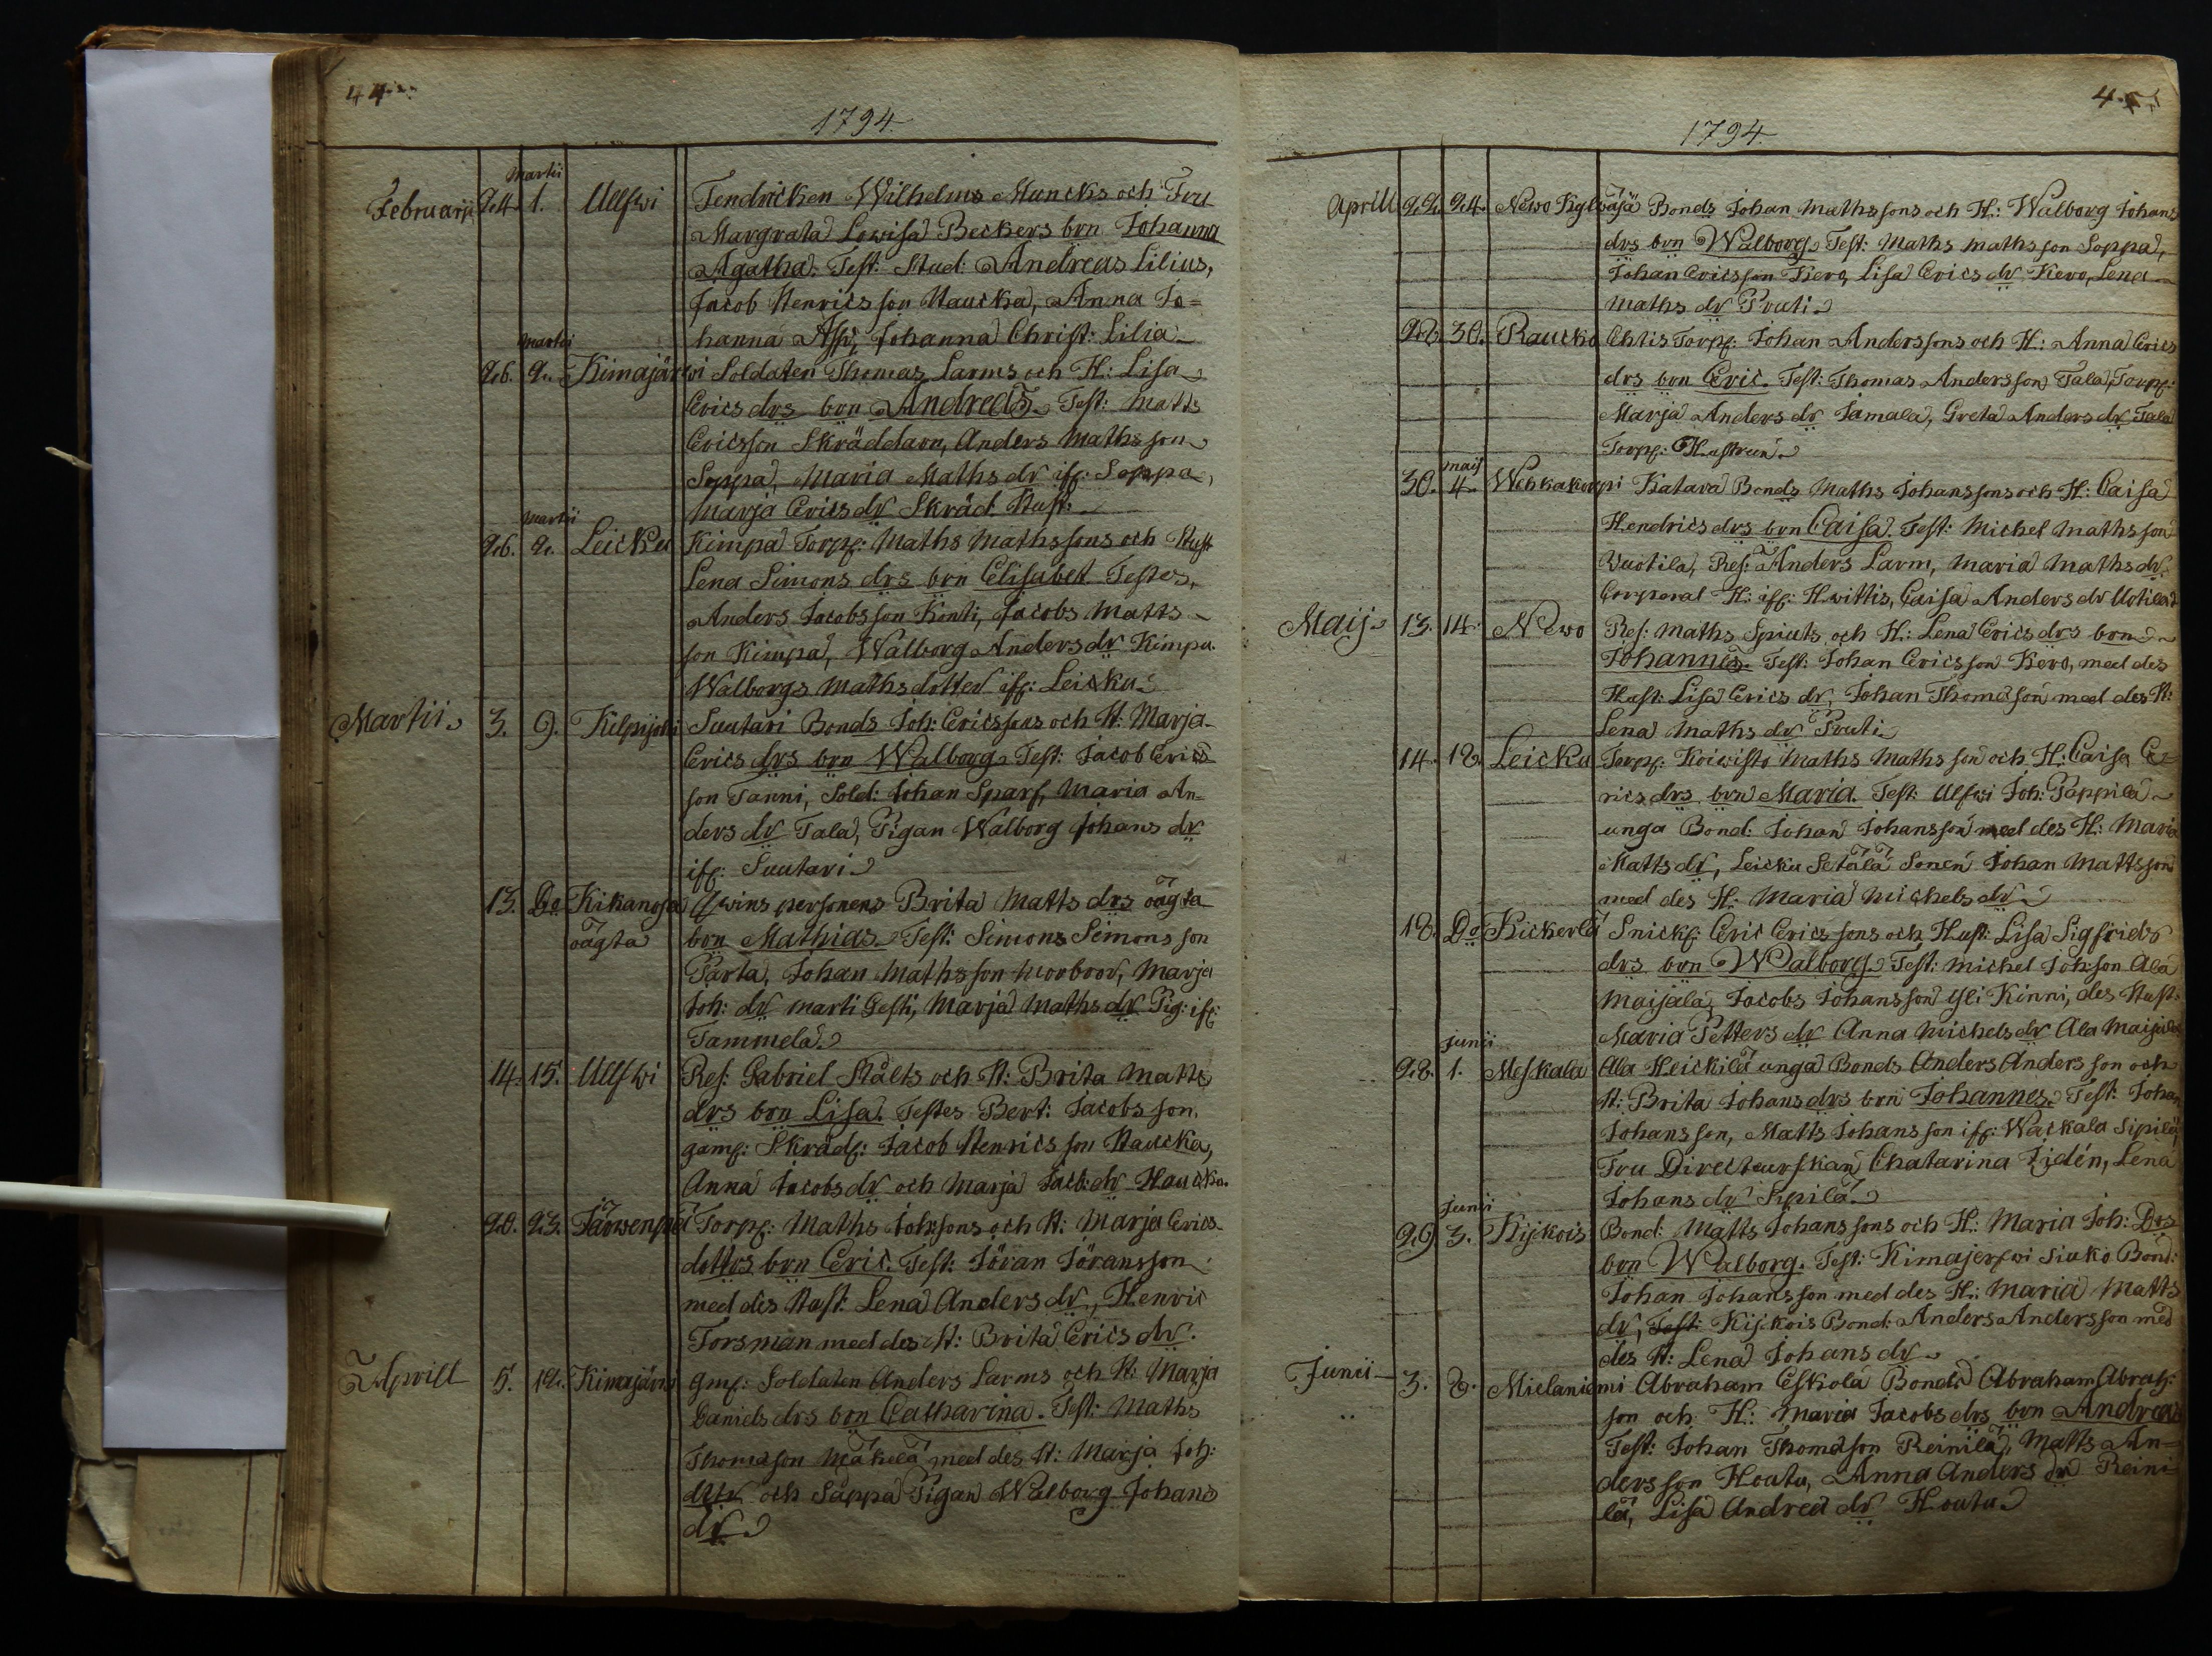 44
1794
Februarij 24. Martii 1. Ullfwi Fendricken Wilhelms Muncks och Fru
Margrata Lowisa Beckers brn Johanna
Agatha. Test: Stud: Andreas Lilius,
Jacob Henricsson Haucka, Anna Jo=
hanna Asp, Johanna Christ: Lilia
26. Martii 2. Kimajärwi Soldaten Thomas Larms och H: Lisa
Erics drs brn Andreas Test: Matts
Ericsson Skräddarn, Anders Mathsson
Soppa, Maria Maths dr ifr: Soppa,
Marja Erics dr Skräd. Hust:
26. Martii 2. Leicku Kimpa Torp: Maths Mathssons och Hust
Lena Simons drs brn Elisabet Testes,
Anders Jacobsson Konti, Jacobs Matts
son Kimpa, Walborg Anders dr Kimpa.
Walborgs Maths dotter ifr: Leicku
Martii 3. 9. Kilpijoki Suutari Bonds Joh: Ericssons och H: Marja
Erics drs brn Walborg Test: Jacob Erics
son Tanni, Sold: Johan Sparf, Maria An=
ders dr Tala, Pigan Walborg Johans dr
ifr: Suutari
13. Do Kikanoja oägta Qwins personens Brita Matts drs oägta
brn Mathias. Test: Simons Simons son
Parta, Johan Mathsson Morbror, Marja
Joh: dr Marti Gesti, Marja Maths dr Pig: ifr:
Tammela
14. 15. Ullfwi Res: Gabriel Stålts och H: Brita Matts
drs brn Lisa. Testes Bert: Jacobsson.
gamf: Skrädf: Jacob Henricsson Haucka,
Anna Jacobs dr och Marja Jacb: dr Haucka.
20. 23. Järwenpä Torp: Maths Johssons och H: Marja Erics
dottrs brn Eric. Test: Jöran Jöransson
med des Hust: Lena Anders dr, Henric
Forsman med des H: Brita Erics dr.
Aprill 5. 12. Kimajärwi gmf: Soldaten Anders Larms och H: Marja
Daniels drs brn Catharina. Test: Maths
Thomasson Mäkelä med des H: Marja Joh:
dttr och Sappa Pigan Walborg Johans
dr
45
1794
Aprill 22. 24. Newo Kylwäjä Bonds Johan Mathssons och H: Walborg Johans
drs brn Walborg Test: Maths Mathsson Soppa,
Johan Ericsson Kero, Lisa Erics dr Kero, Lena
Maths dr Pruti
28. 30. Raucko Ehlis Torp: Johan Anderssons och H: Anna Erics
drs brn Eric. Test: Thomas Andersson Tala, Torp:
Marja Anders dr Jamala, Greta Anders dr Tala
Torp: Hustrun
30. Maij 4. Wehkakorpi Katara Bonds Maths Johanssons och H: Caisa
Hendrics drs brn Caisa. Test: Michel Mathsson
Wuotila, Res: Anders Larm, Maria Maths dr
Corporal H: ifr: Hwittis, Caisa Anders dr Uotila
Maij 13. 14. Newo Res: Maths Spiuts och H: Lena Erics drs brn
Johannes. Test: Johan Ericsson Kero, med des
Hust: Lisa Erics dr, Johan Thomasson med des H:
Lena Maths dr Pruti
14. 18. Leicku Torp: Koiwisto Maths Mathsson och H: Caisa E=
rics drs brn Maria. Test: Ulfwi Joh: Pappila
unga Bond: Johan Johansson med des H: Maria
Matts dr, Leicku Setälä Sonen Johan Mattsson
med des H: Maria Michels dr
18. Do Kickerlä Snickf: Eric Ericssons och Hust: Lisa Sigfrids
drs brn Walborg. Test: Michel Johsson Ala
Maijala, Jacobs Johansson Yli Kinni, des Hust:
Maria Petters dr Anna Michels dr Ala Maijala
28. Junii 1. Meskala Ala Heickilä unga Bonds Anders Andersson och
H: Brita Johans drs brn Johannes. Test: Johan
Johansson, Matts Johansson ifr: Wackala Sipilä,
Fru Directeurskan Chatarina Fidén, Lena
Johans dr Sipilä
29. Junii 3. Kijkois Bond: Matts Johanssons och H: Maria Joh: Drs
brn Walborg. Test: Kimajerfwi Siuko Bond:
Johan Johansson med des H: Maria Matts
dr, Test: Kijkois Bond: Anders Andersson med
des H: Lena Johans dr
Junii 3. 8. Mielaniemi Abraham Eskola Bonds Abraham Abrah:
son och H: Maria Jacobs drs brn Andreas
Test: Johan Thomasson Reinilä, Matts An=
dersson Houtu, Anna Anders dr Reini
lä, Lisa Andrea dr Houtu